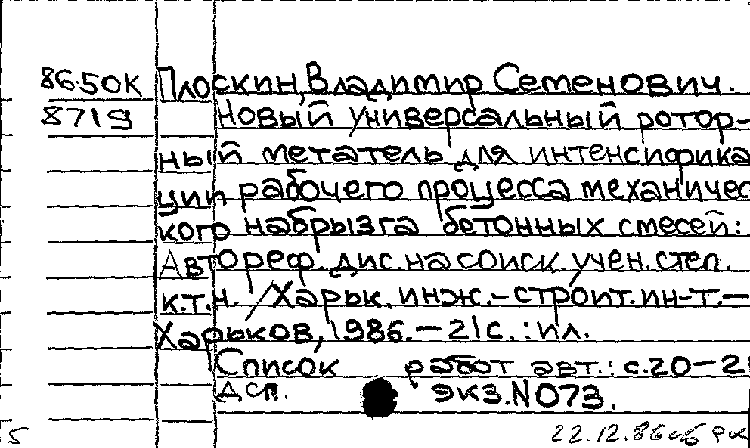 86-50К Плоскин, Владимир Семенович.
8719 Новый универсальный ротор-
ный метатель для интенсифика
ции рабочего процесса механичес
кого набрызга бетонных смесей:
Автореф. дис. на соиск. учен. степ.
к.т.н. /Харьк. инж.-строит. ин-т.—
Харьков, 1986.—21с.:ил.
Список работ авт.: с.20-21
ДСП. экз.N073.
5 22.12.86